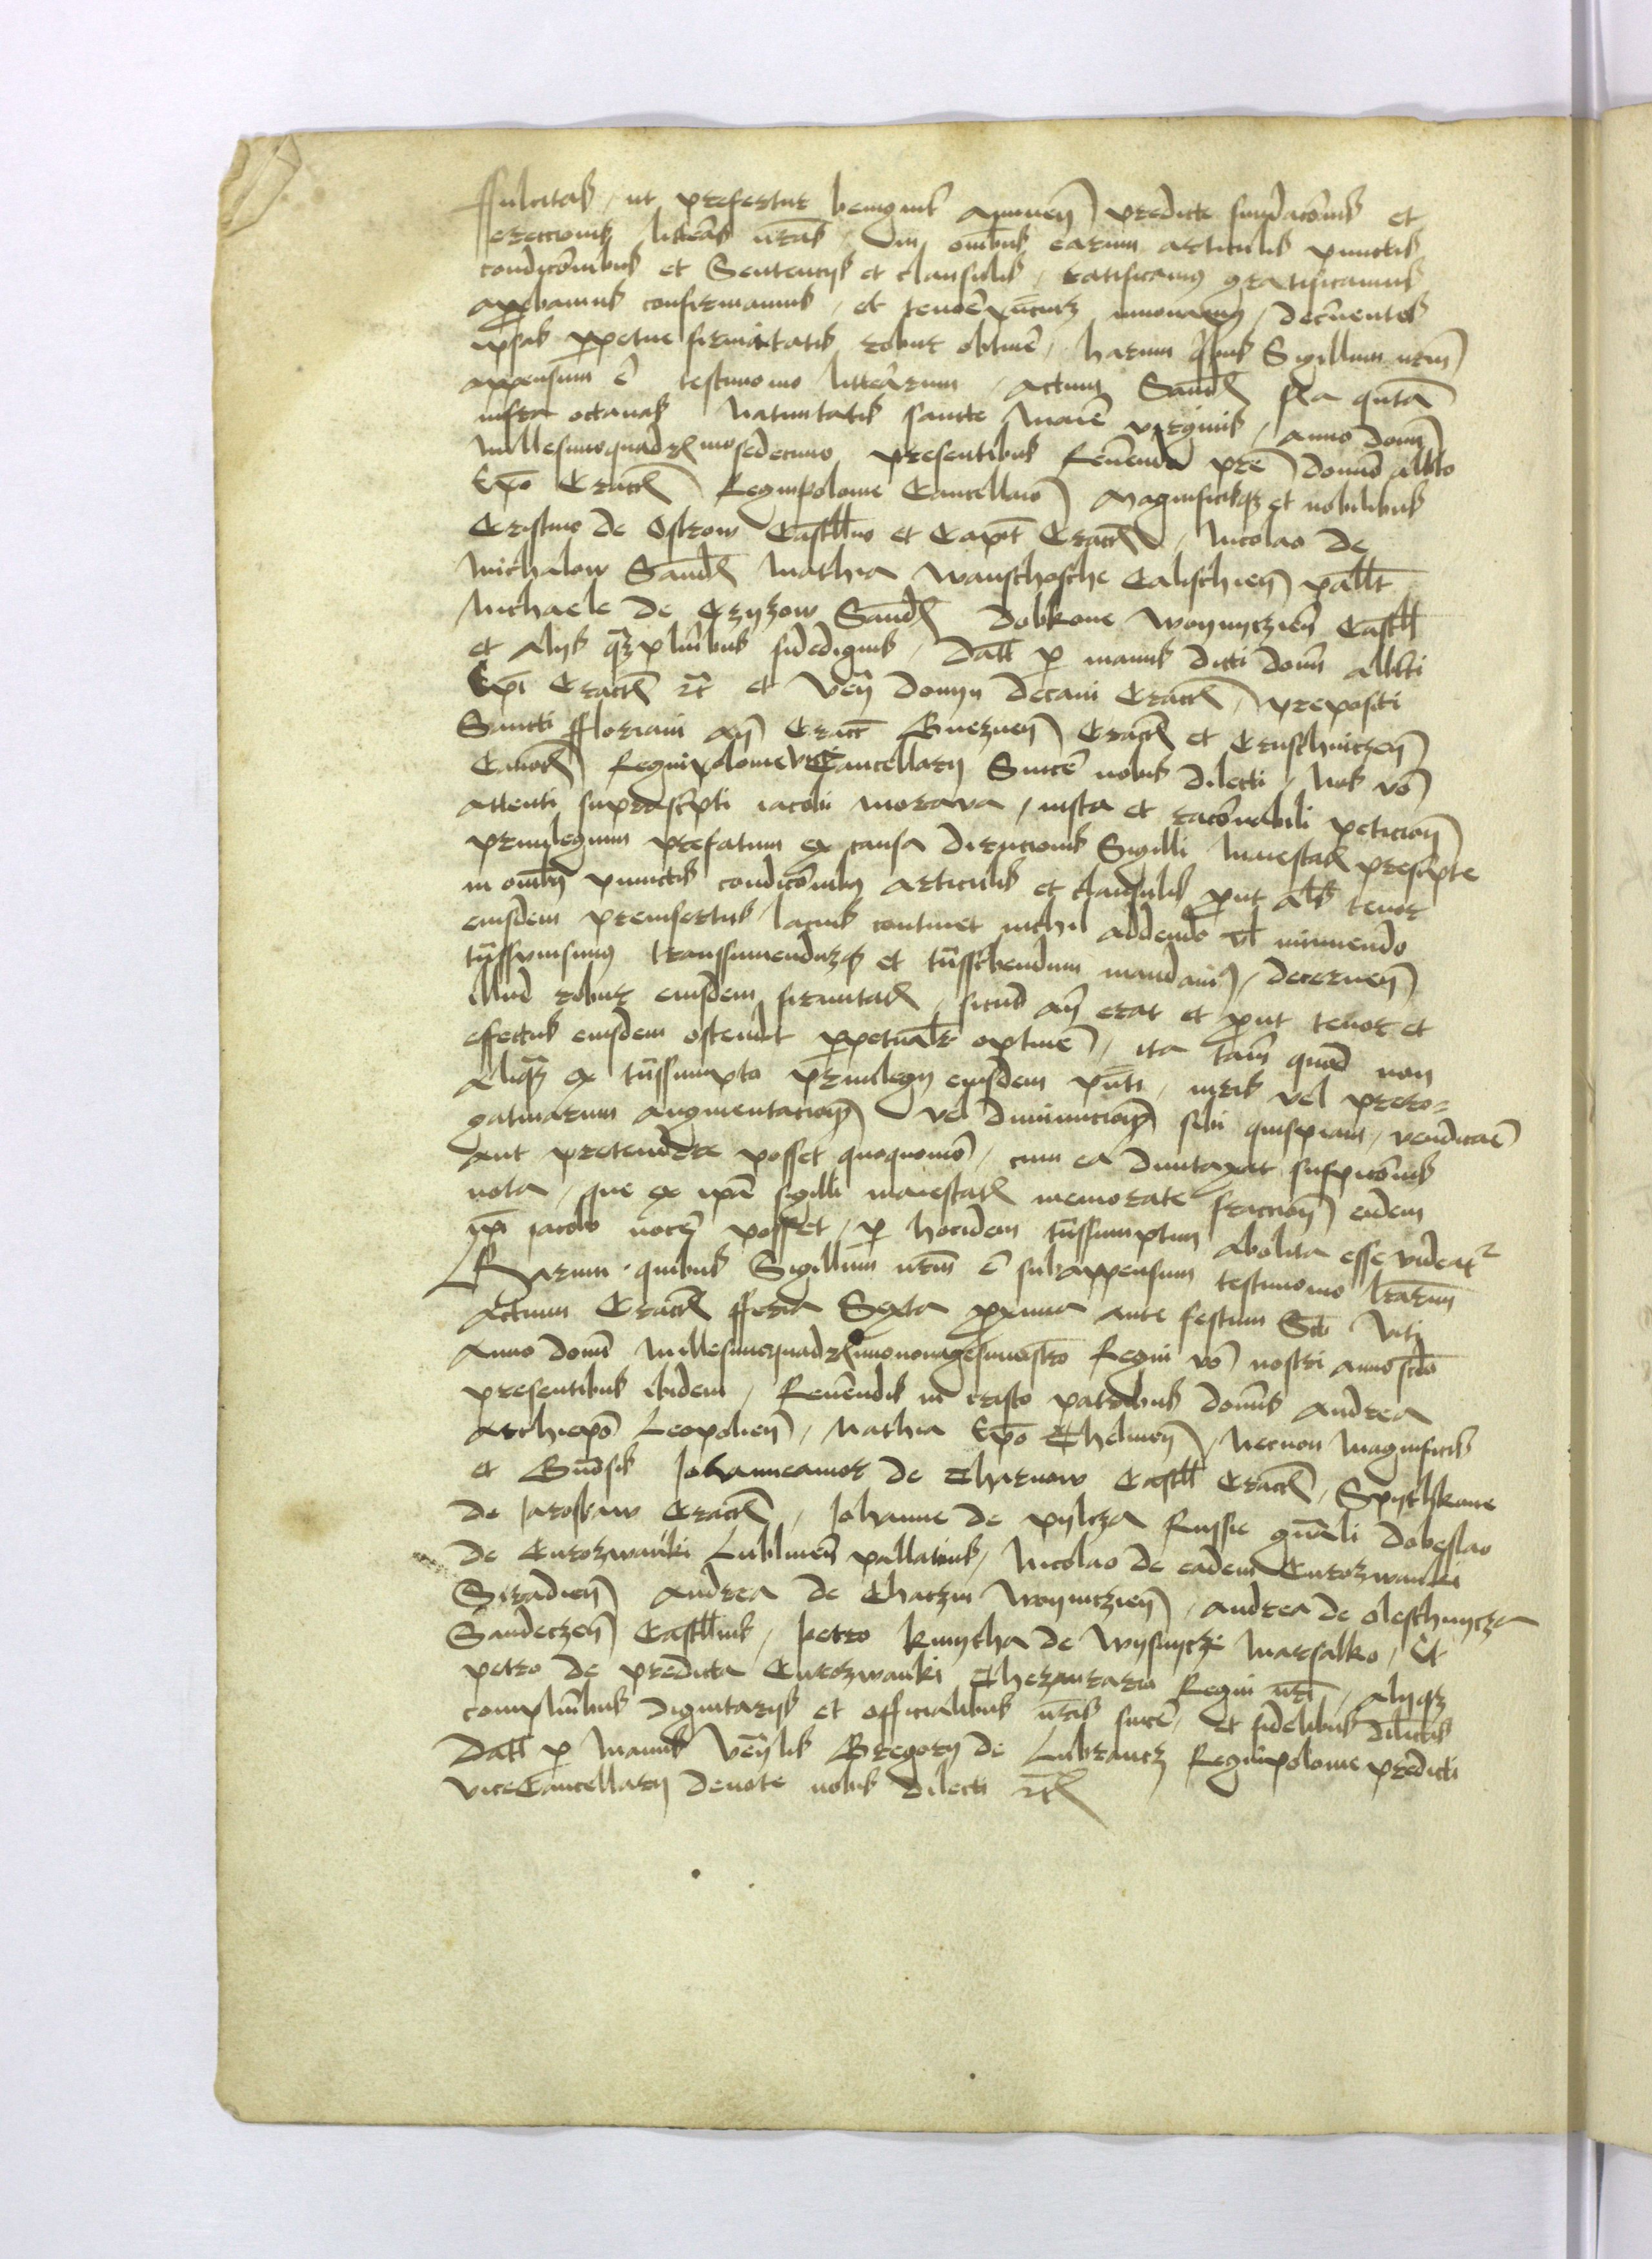 ffulcitas, ut prefertur benigniter annuentes predicte fundacōnis et
ereccionis litteras nr̄as, in om̄ibus earum articulis punctis
condicōnibus et Sentencijs et clausulis, ratificamus gratificamus
approbamus confirmamus, et innouamus, decernentes
ipsas perpetue firmitatis robur obtinē, harum quibus Sigillum nr̄m
appensum ē testimonio litterarum, Actum Sand feria quīta
infra octauas Natiuitatis sancte Marie virginis, Anno domī
Millesimoquadrmosedecimo presentibus Reuerendo pr̄e domīo Alb̄to
Ep̄o Cracō Regnipolonie Cancellario Magnificisqz et nobilibus
Cristino de Ostrow Castll̄no et Capit Cracō, Nicolao de
Michalow Sand Mathia Wanschosche Calischien pallt̄
Michaele de Czyzow Sand Dobkone Woynyczien Castll
et Alijs qz plūribus fidedignis, Datt per manus dicti domī alb̄ti
Ep̄i Cracō rc̄ et Ven domyn Decani Cracō, prepositi
Sancti fforiani ān Cracc Gneznen Cracō et Cruschuiczen
Canoc Regnipolonie viceCancellarij Sincē nobis dilecti, Nos vō
attenti suprascripti iacobi morawa, iusta et racōnabili peticion
priuilegium prefatum ex causa dirucionis Sigilli Maiestatis prescripte
in om̄ibus punctis condicōnibus articulis et clausulis prout als tenor
eiusdem preinsertus lacius continet nichil addendo vl minuendo
tn̄ssumsimus transsumendumqz et tn̄sscribendum mandauimus, decernen
illud robur eiusdem firmitatis, sicud an̄ erat et prout tenor et
effectus eiusdem ostendit perpetual̄r optinē, ita tam̄ quod non
Aliqz ex tn̄ssumpto priuilegij eiusdem pn̄ti, iuris vel prero=
gatiuarum augmentacion vel diminucion sibi quispiam, vendicaē
Aut pretendere posset quoquomō, cum ea duntaxat suspicōnis
nota, que ex ip̄a sigilli maiestatis memorate fraccion eidem
ip̄i iacobo nocē posset, per hocidem tn̄ssumptum abolita esse videatur
Harum quibus Sigillum nr̄m ē subappensum testimonio lr̄arum
Actum Cracō fferia Sexta proxima ante festum Sct̄i Viti
Anno domī Millesimoquadrmononagesimo Regni vō nostri anno
presentibus ibidem, Reuerendis in cristo patribus domīs Andrea
Archiep̄o Leopolien, Mathia Ep̄o Chelmen, Necnon Magnificis
et Gn̄osis Johanneamor de Tharnow Castll Cracō, Spythkone
de Jaroslaw Cracō, Johanne de pylcza Russie gn̄ali Dobeslao
de Curozwanki Lublinen pallatinis, Nicolao de eadem Curozwanki
Siradien Andrea de Tharzin Woyniczien, Andrea de oleschnycza
Sandeczen Castll̄nis, Petro kmytha de Wysnycze Marsalko, Et
petro de predicta Curozwanki Thezaurario Regni nr̄i, alijqz
complūribus dignitarijs et officialibus nr̄is sincē, et fidelibus dilectis
Datt per Manus Ven̄lis Gregorij de Lubrancz Regnipolonie predicti
viceCancellarij deuote nobis dilecti rc̄